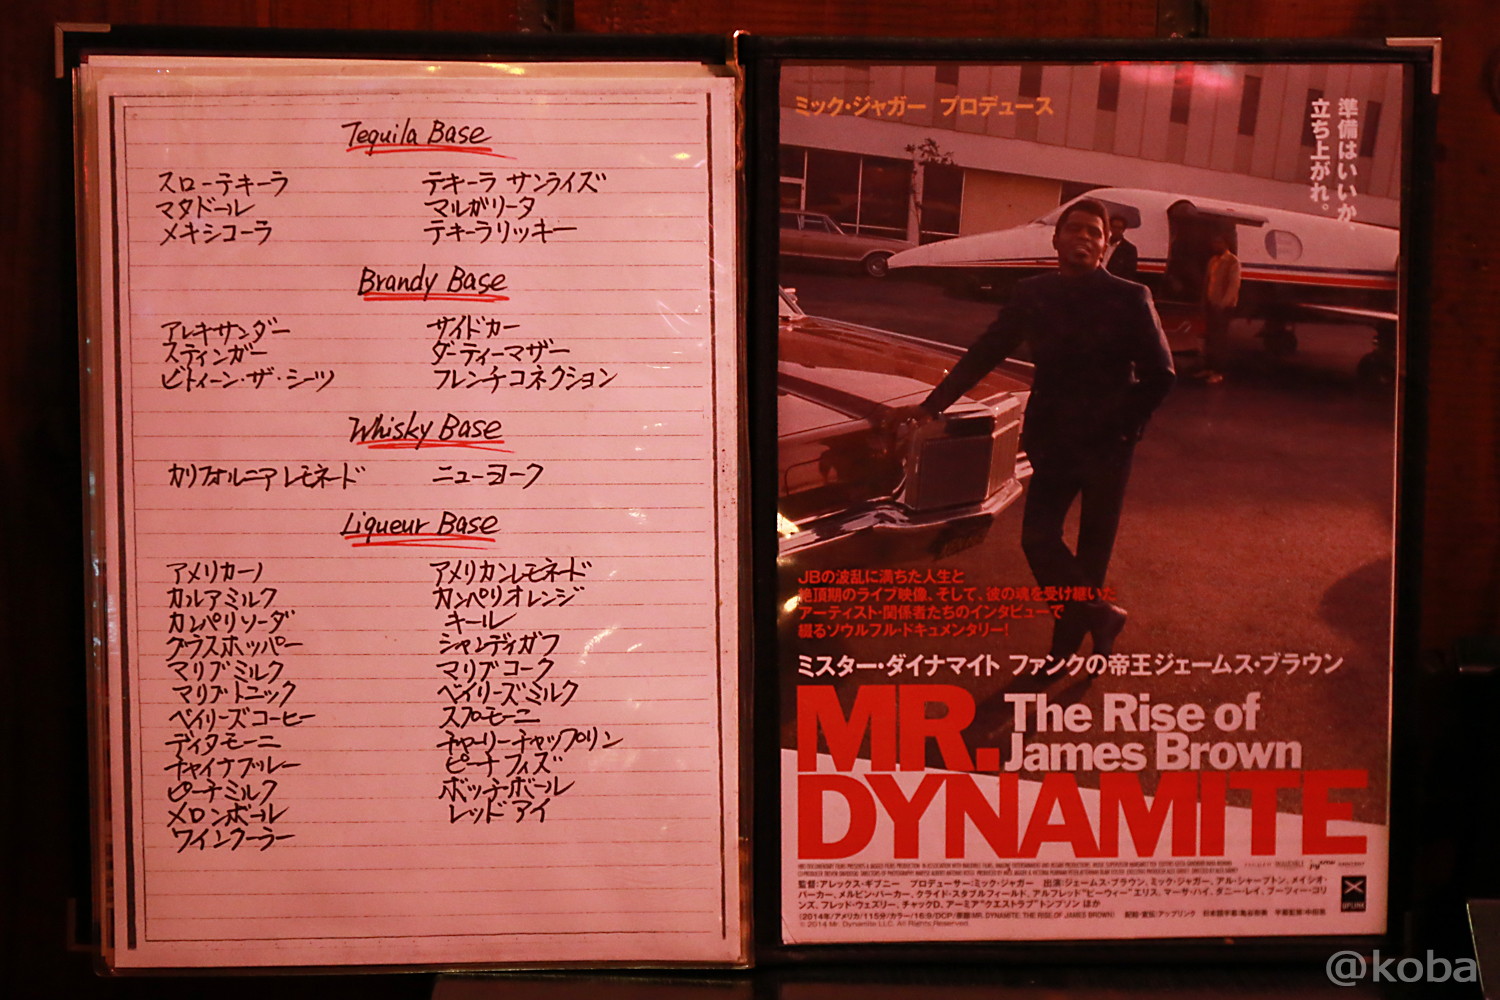 Tequila Base
スローテキーラ テキーラ サンライズ
マタドール マルガリータ
メキシコーラ テキーラリッキー
Brandy Base
アレキサンダー サイドカー
スティンガー ダーティーマザー
ビトィーン・ザ・シーツ フレンチコネクション
Whisky Base
カリフォルニアレモネード ニューヨーク
Liqueur Base
アメリカーノ アメリカンレモネード
カルアミルク カンパリオレンジ
カンパリソーダ キール
グラスホッパー シャンディガフ
マリブミルク マリブコーク
マリブトニック ベイリーズミルク
ベイリーズコーヒー スプモーニ
ディタモーニ チャーリーチャップリン
チャイナブルー ピーチフィズ
ピーチミルク ボッチボール
メロンボール レッドアイ
ワインクーラー
ミック・ジャガー プロデュース
準備はいいか
立ち上がれ。
JBの波乱に満ちた人生と
絶頂期のライブ映像、そして、彼の魂を受け継いだ
アーティスト・関係者たちのインタビューで
綴るソウルフル・ドキュメンタリー!
ミスター・ダイナマイト ファンクの帝王ジェームス・ブラウン
MR. The Rise of
James Brown
DYNAMITE
監督:アレックス・ギブニー プロデューサー:ミック・ジャガー 出演:ジェームス・ブラウン、ミック・ジャガー、アル・シャープトン、メイシオ・
パーカー、メルビン・パーカー、クライド・スタブルフィールド、アルフレッド"ピーウィー"エリス、マーサ・ハイ、ダニー・レイ、ブーツィー・コリ
ンズ、フレッド・ウェズリー、チャックD、アーミア"クエストラブ"トンプソン ほか
(2014年/アメリカ/115分/カラー/16:9/DCP/原題:MR. DYNAMITE: THE RISE OF JAMES BROWN) 配給・宣伝:アップリンク
© 2014 Mr. Dynamite LLC. All Rights Reserved.
UPLINK
@koba